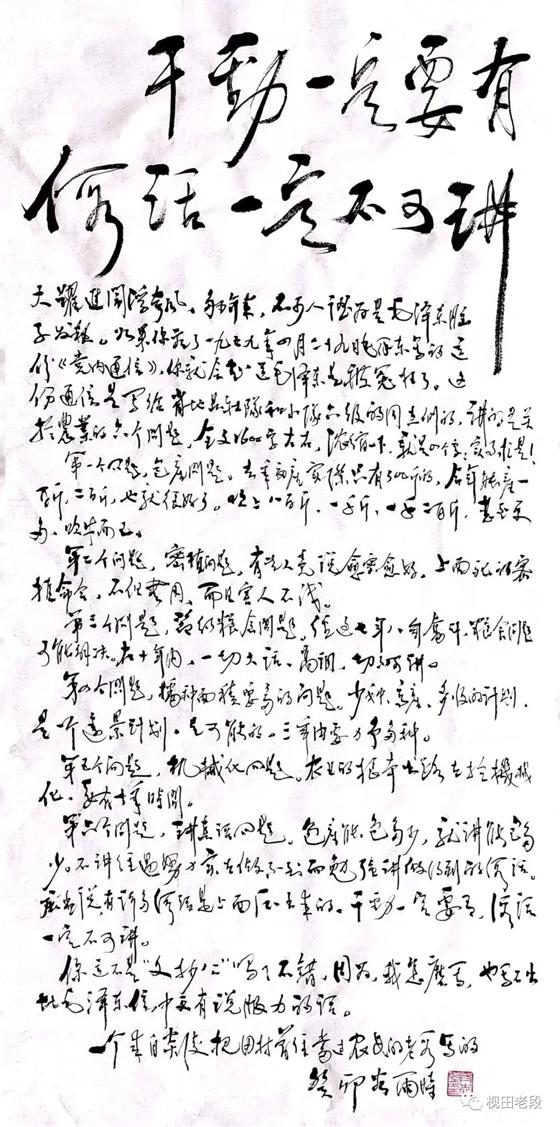 干劲一定要有
假话一定不可讲
大跃进闹浮夸风，多年来，不少人谓为是毛泽东脑
子发热。如果你看了一九五九年四月二十九日毛泽东写的这
份《党内通信》，你就会知道毛泽东是被冤枉了。这
份通信是写给省地县社队和小队六级的同志们的，讲的是关
于农业的六个问题，全文1600字左右，
第一个问题，包产问题。去年亩产实际只有300斤的，今年能产一
百斤、二百斤，也就很好了。吹上八百斤、一千斤、一千二百斤，甚至更
多，吹牛而已。
第二个问题，密植问题，有些人竟说愈密愈好。上面死的密
植命令，不但无用，而且害人不浅。
第三个问题，节约粮食问题。经过七年八年奋斗，粮食问题
可能解决。在十年内，一切大话、高调，切不可讲。
第四个问题，播种面积要多的问题。少种、高产、多收的计划，
是一个远景计划，是可能的。三年内要力争多种。
第五个问题，机械化问题。农业的根本出路在于机械
化，要有十年时间。
第六个问题，讲真话问题。包产能包多少，就讲能包多
少。不讲经过努力实在做不到而勉强讲做得到的假话。
应当说，有许多假话是上面压出来的。干劲一定要有，假话
一定不可讲。
你这不是“文抄公”吗？不错，因为，我怎么写，也写不出
比毛泽东信中更有说服力的话。
一个来自农陵把田村前住
癸卯谷雨时
视田老段